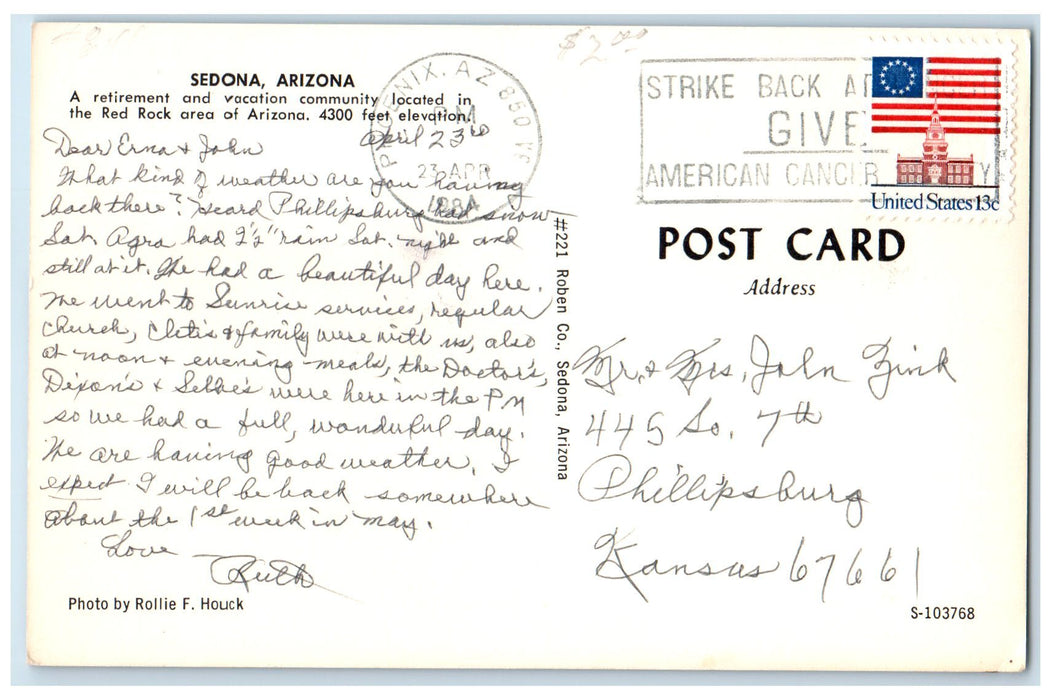 $2.00
SEDONA, ARIZONA
A retirement and vacation community located in
the Red Rock area of Arizona. 4300 feet elevation.
April 23rd
Dear Erna & John
What kind of weather are you having
back there? Heard Phillipsburg had snow
Sat. Agra had 2½" rain Sat. nite and
still at it. We had a beautiful day here.
We went to Sunrise services, regular
church, Cletis & family were with us, also
at noon & evening meals, the Doctor's,
Dixon's & Selbie's were here in the PM
so we had a full, wonderful day.
We are having good weather. I
expect I will be back somewhere
about the 1st week in May.
Love
Ruth
Photo by Rollie F. Houck
#221 Roben Co., Sedona, Arizona
PHOENIX, AZ 850
PM
23 APR
1984
STRIKE BACK
GIVE
AMERICAN CANCER
United States 13c
POST CARD
Address
Mr. & Mrs. John Zink
445 So. 7th
Phillipsburg
Kansas 67661
S-103768